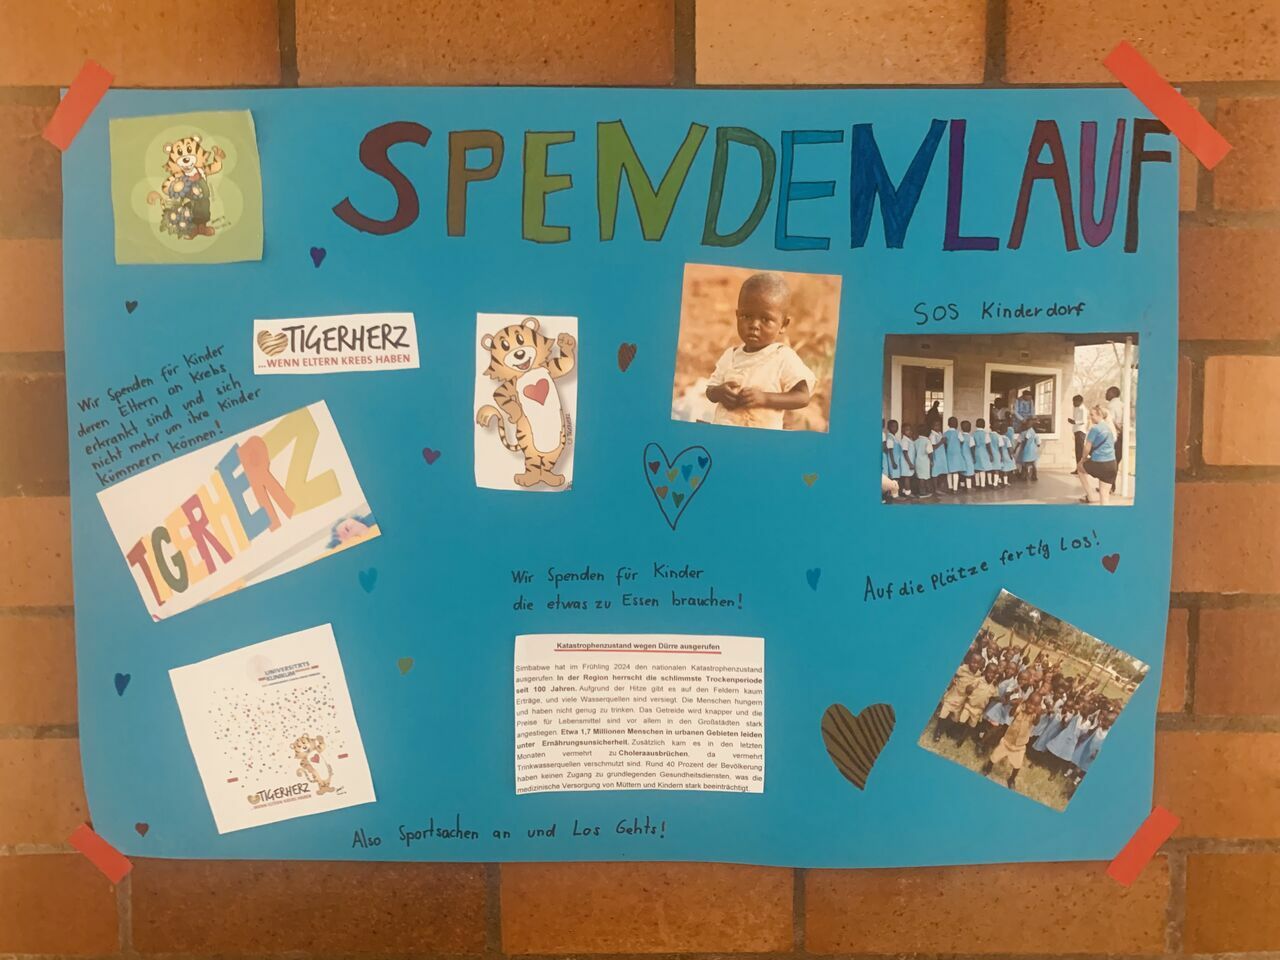 SPENDENLAUF
SOS Kinderdorf
TIGERHERZ
...WENN ELTERN KREBS HABEN
Wir Spenden für Kinder
deren Eltern an Krebs
erkrankt sind und sich
nicht mehr um ihre Kinder
kümmern können!
TIGERHERZ
Auf die Plätze fertig Los!
Wir Spenden für Kinder
die etwas zu Essen brauchen!
Katastrophenzustand wegen Dürre ausgerufen
Simbabwe hat im Frühling 2024 den nationalen Katastrophenzustand
ausgerufen. In der Region herrscht die schlimmste Trockenperiode
seit 100 Jahren. Aufgrund der Hitze gibt es auf den Feldern kaum
Erträge, und viele Wasserquellen sind versiegt. Die Menschen hungern
und haben nicht genug zu trinken. Das Getreide wird knapper und die
Preise für Lebensmittel sind vor allem in den Großstädten stark
angestiegen. Etwa 1,7 Millionen Menschen in urbanen Gebieten leiden
unter Ernährungsunsicherheit. Zusätzlich kam es in den letzten
Monaten vermehrt zu Choleraausbrüchen, da vermehrt
Trinkwasserquellen verschmutzt sind. Rund 40 Prozent der Bevölkerung
haben keinen Zugang zu grundlegenden Gesundheitsdiensten, was die
medizinische Versorgung von Müttern und Kindern stark beeinträchtigt.
UNIVERSITÄTS
KLINIKUM
TIGERHERZ
...WENN ELTERN KREBS HABEN
Also Sportsachen an und Los Gehts!